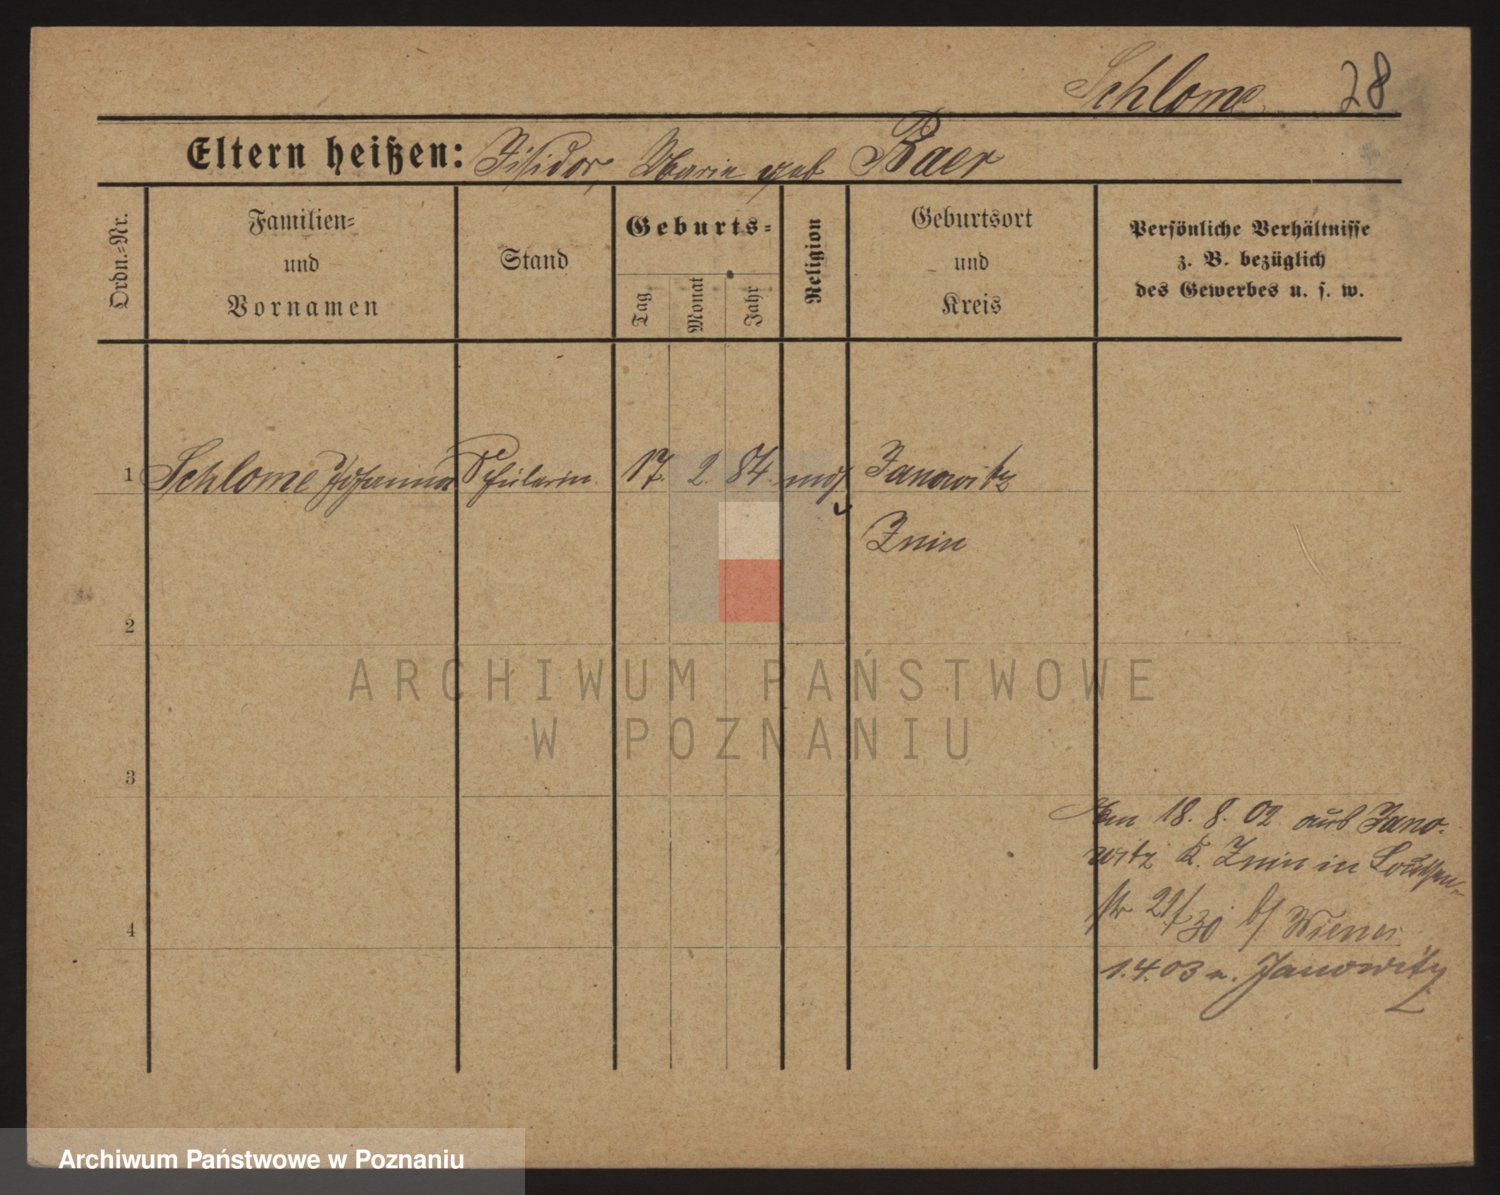 Schlome 28
Eltern heißen: Isidor, Marie geb Baer
Ordn.-Nr.
Familien-
und
Vornamen
Stand
Geburts-
Tag
Monat
Jahr
Religion
Geburtsort
und
Kreis
Persönliche Verhältnisse
z. B. bezüglich
des Gewerbes u. s. w.
1 Schlome Johanna Schülerin 17. 2. 84. mos Janowitz
Znin
2
ARCHIWUM PAŃSTWOWE
W POZNANIU
3
Am 18. 8. 02 aus Jano-
witz K. Znin in Louisen-
str 29/30 b/ Wiener
4
1.4.03 n. Janowitz
Archiwum Państwowe w Poznaniu